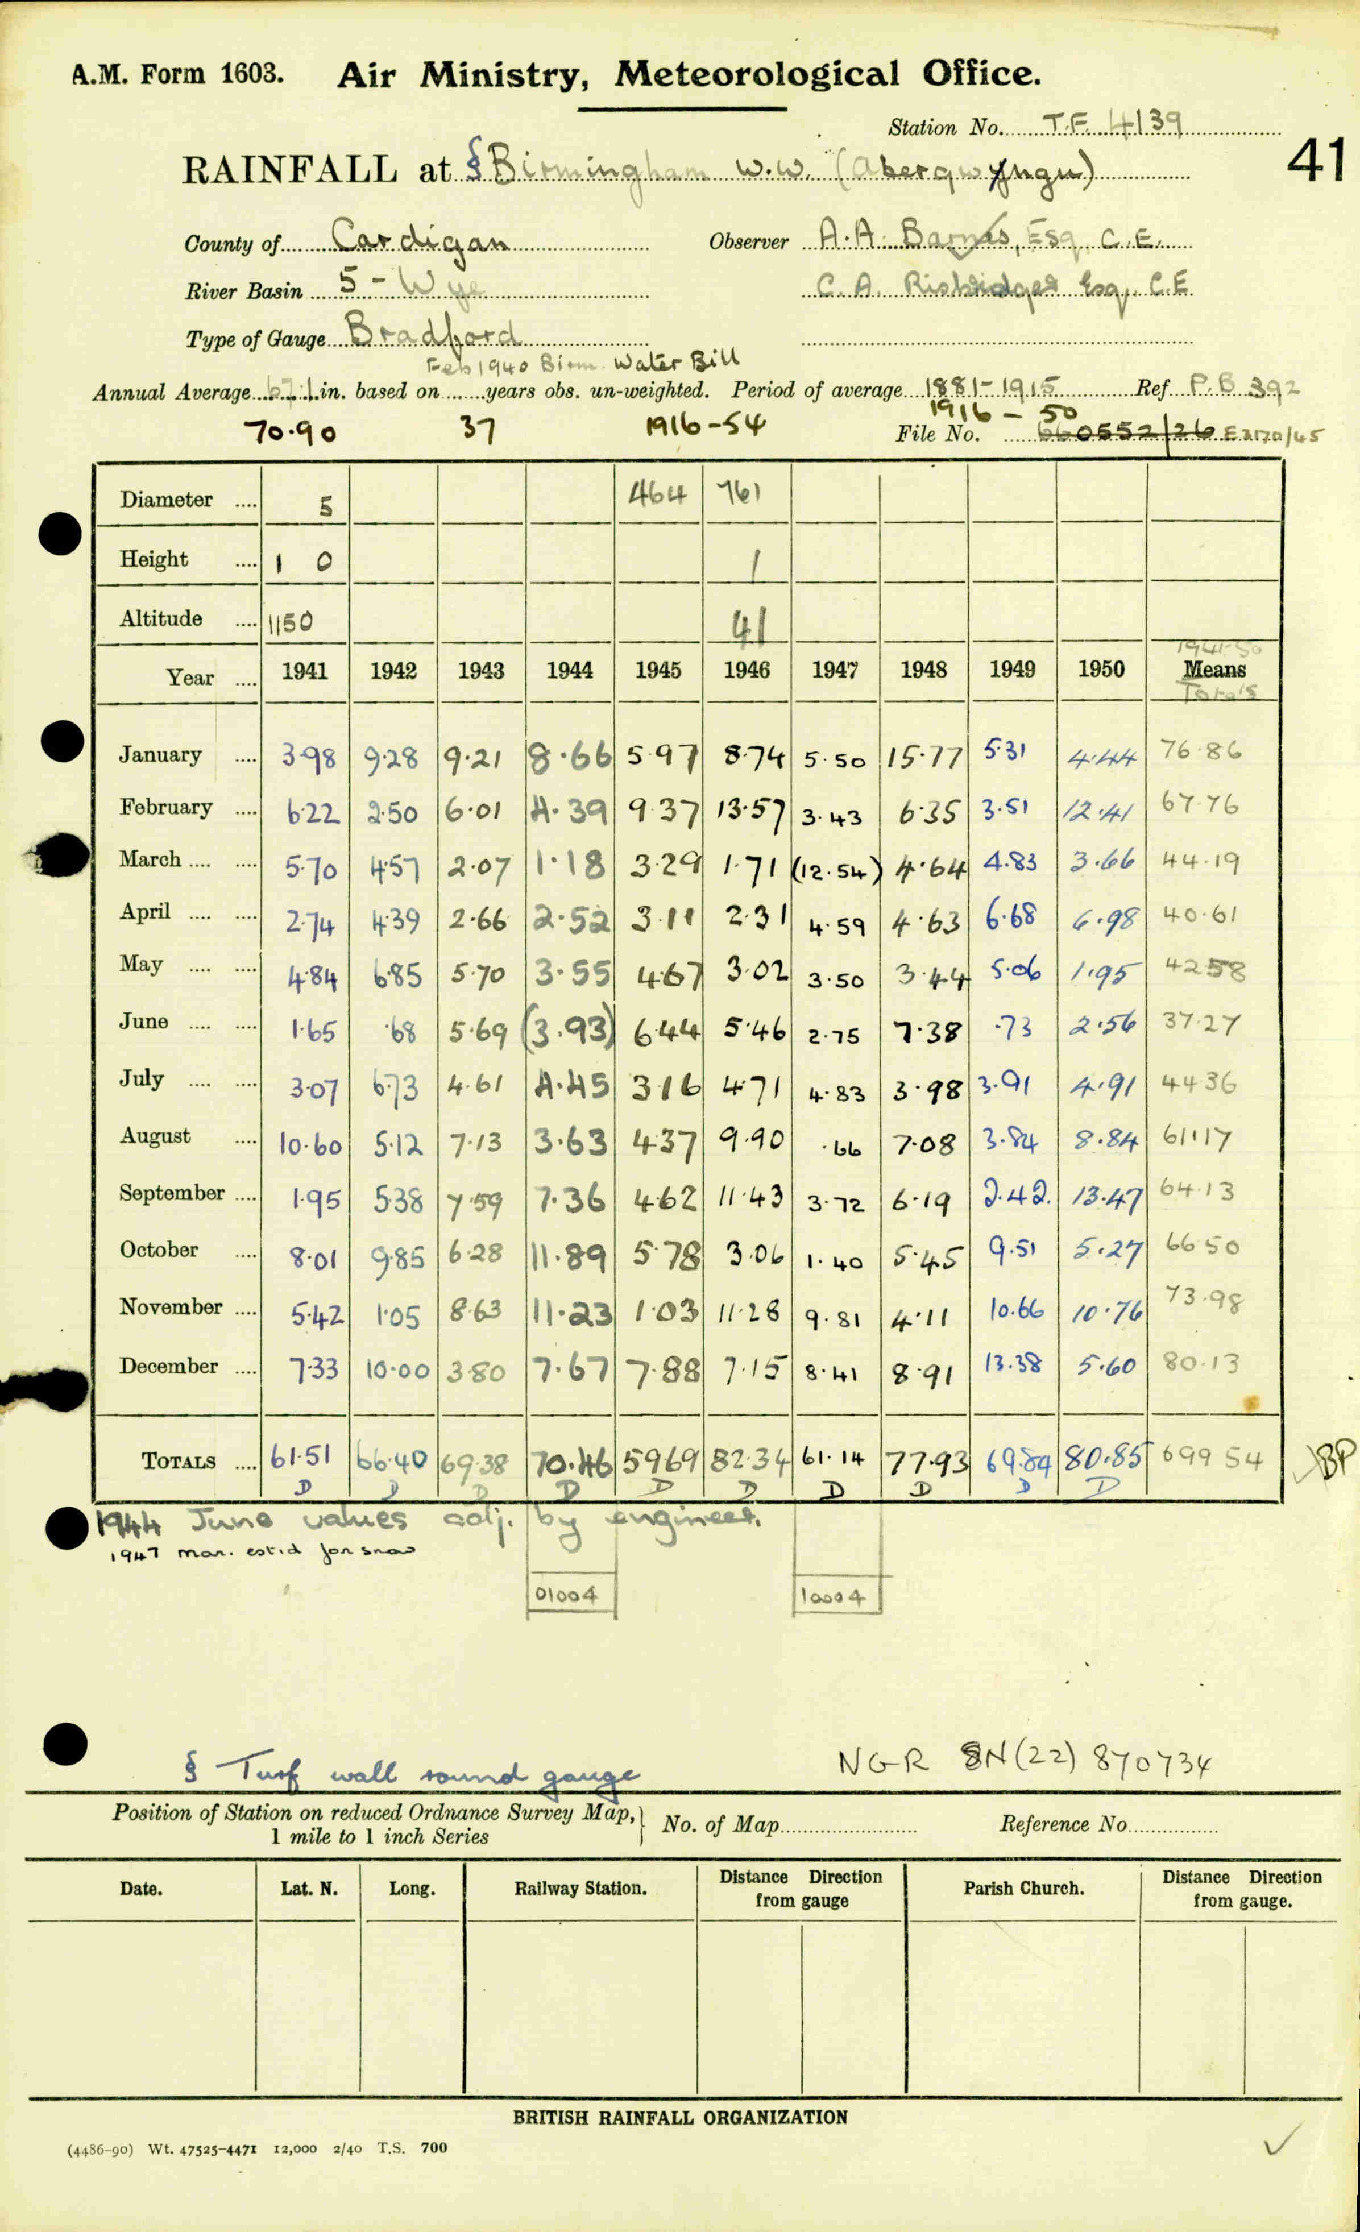 A.M. Form 1603. Air Ministry, Meteorological Office.
Station No. T.F. 4139
41
RAINFALL at § Birmingham W.W. (Abergwyngu)
County of Cardigan Observer A.A. Barnes, Esq. C.E.
River Basin 5 - Wye C. A. Risbridger Esq. C.E
Type of Gauge Bradford
Feb 1940 Birm. Water Bill
Annual Average 67.1 in. based on years obs. un-weighted. Period of average 1881-1915 Ref P.B 392
1916 - 50
70.90 37 1916-54 File No. 660552/26 E2170/45
Diameter .... 5 464 761
Height .... 1 0 1
Altitude .... 1150 41
1941-50
Year .... 1941 1942 1943 1944 1945 1946 1947 1948 1949 1950 Means
Totals
January .... 3.98 9.28 9.21 8.66 5.97 8.74 5.50 15.77 5.31 4.44 76.86
February .... 6.22 2.50 6.01 4.39 9.37 13.57 3.43 6.35 3.51 12.41 67.76
March .... .... 5.70 4.57 2.07 1.18 3.29 1.71 (12.54) 4.64 4.83 3.66 44.19
April .... .... 2.74 4.39 2.66 2.52 3.11 2.31 4.59 4.63 6.68 6.98 40.61
May .... .... 4.84 6.85 5.70 3.55 4.67 3.02 3.50 3.44 5.06 1.95 42.58
June .... .... 1.65 .68 5.69 (3.93) 6.44 5.46 2.75 7.38 .73 2.56 37.27
July .... .... 3.07 6.73 4.61 4.45 3.16 4.71 4.83 3.98 3.91 4.91 44.36
August .... 10.60 5.12 7.13 3.63 4.37 9.90 .66 7.08 3.84 8.84 61.17
September .... 1.95 5.38 7.59 7.36 4.62 11.43 3.72 6.19 2.42. 13.47 64.13
October .... 8.01 9.85 6.28 11.89 5.78 3.06 1.40 5.45 9.51 5.27 66.50
November .... 5.42 1.05 8.63 11.23 1.03 11.28 9.81 4.11 10.66 10.76 73.98
December .... 7.33 10.00 3.80 7.67 7.88 7.15 8.41 8.91 13.38 5.60 80.13
TOTALS .... 61.51 66.40 69.38 70.46 59.69 82.34 61.14 77.93 69.84 80.85 699.54 BP
D D D D D D D D D D
1944 June values adj. by engineer.
1947 mar. est.d for snow
01004 10004
§ Turf wall round gauge NGR SN(22) 870734
Position of Station on reduced Ordnance Survey Map, No. of Map Reference No
1 mile to 1 inch Series
Date. Lat. N. Long. Railway Station. Distance Direction from gauge Parish Church. Distance Direction from gauge.
BRITISH RAINFALL ORGANIZATION
(4486-90) Wt. 47525-4471 12,000 2/40 T.S. 700